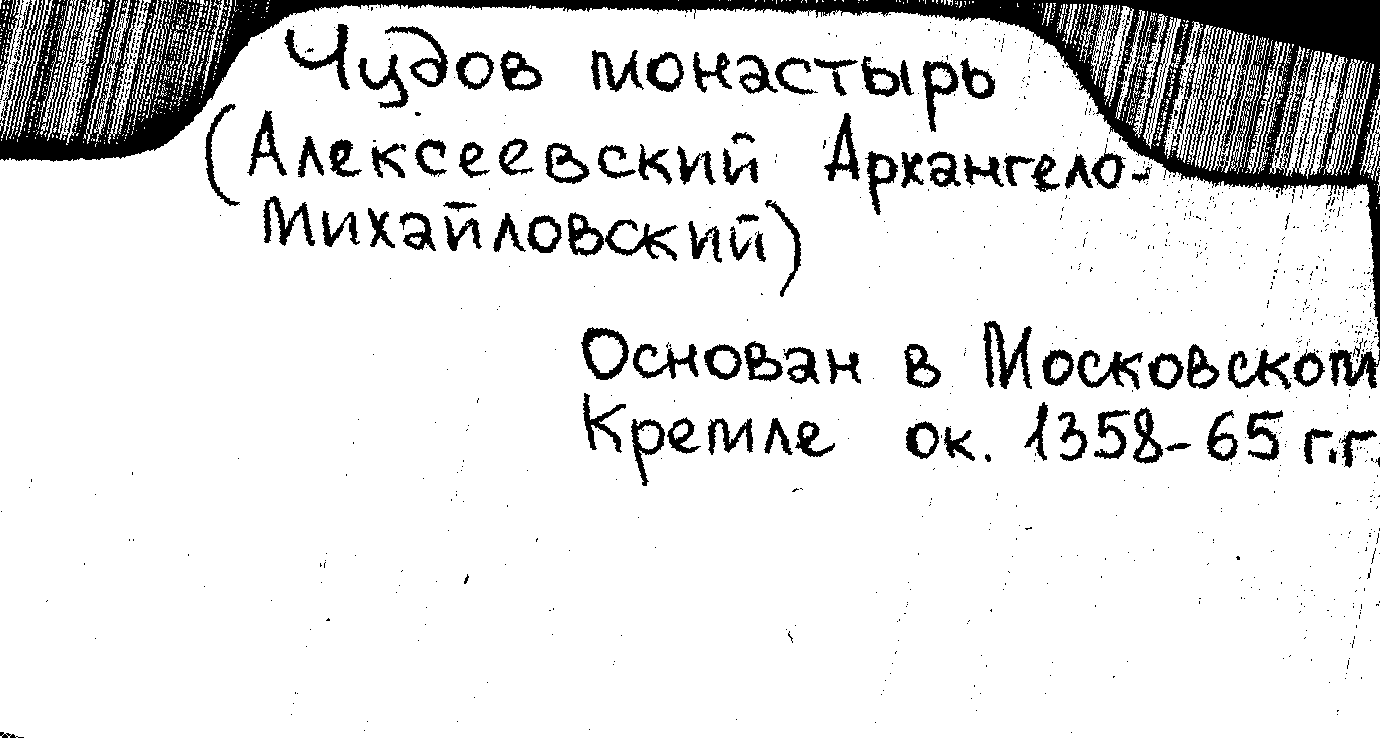 Чудов монастырь
(Алексеевский Архангело-
Михайловский)
Основан в Московском
Кремле ок. 1358-65 г.г.